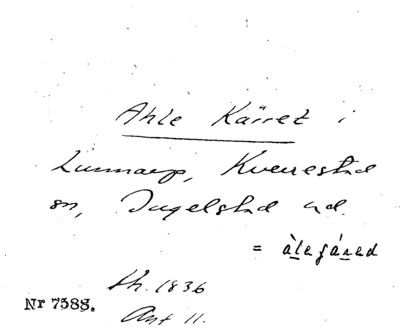 Ahle Kärret i
Lunnarp, Kverrestad
sn, Ingelstad hd.
= àlegáred
Lh. 1836
Akt 11.
Nr 7588.